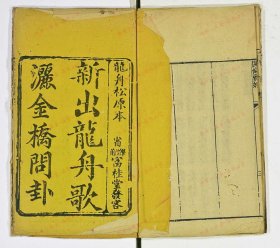 龍舟松原本
新出龍舟歌
灑金橋問卦
富桂堂發客